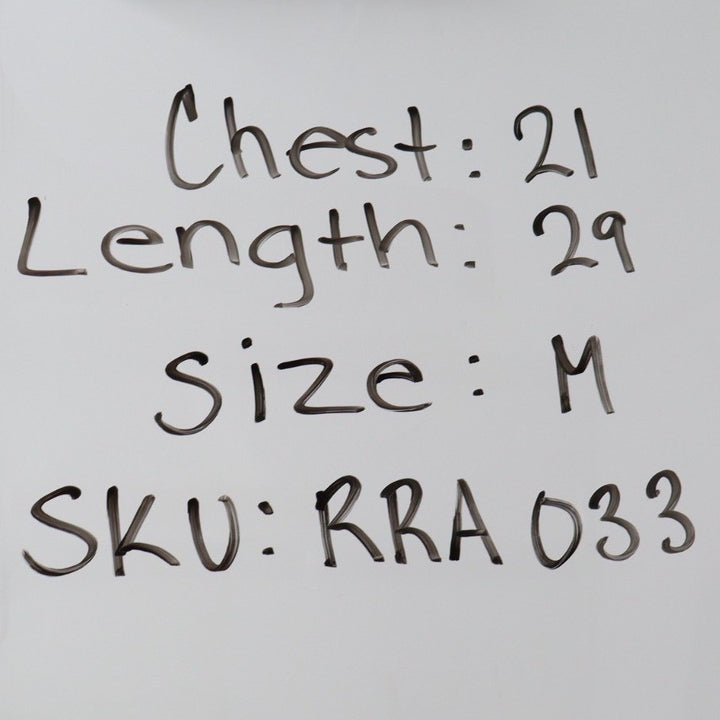 Chest: 21
Length: 29
Size: M
SKU: RRA 033